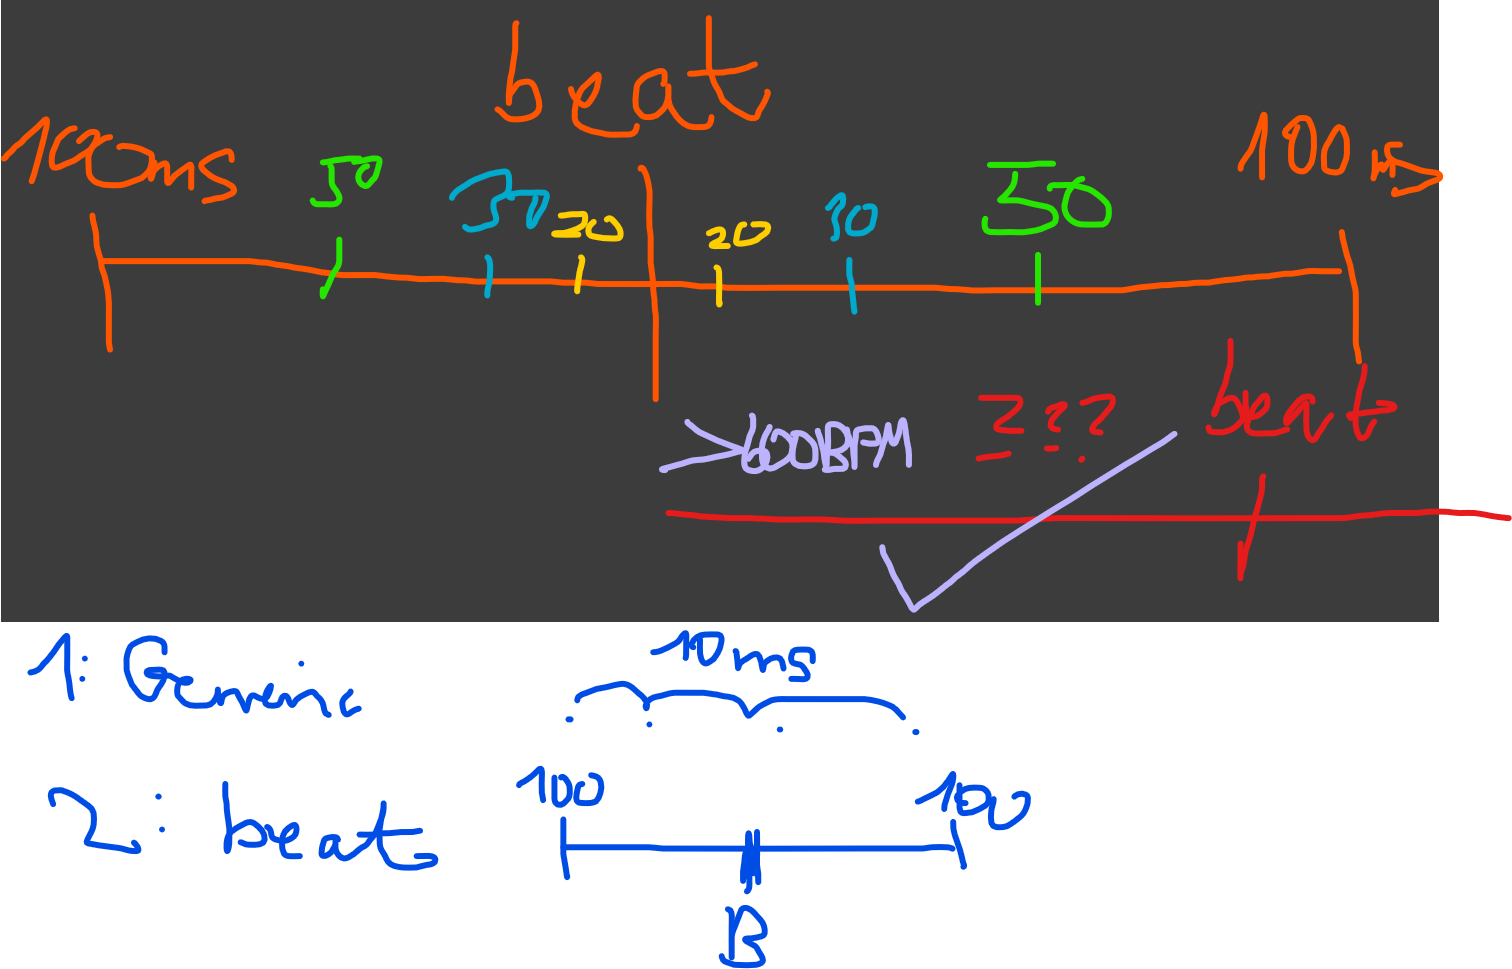 beat
100ms 50 30 20 20 30 50 100ms
>600BPM ??? beat
1: Generic 10ms
2: beats 100 100
B